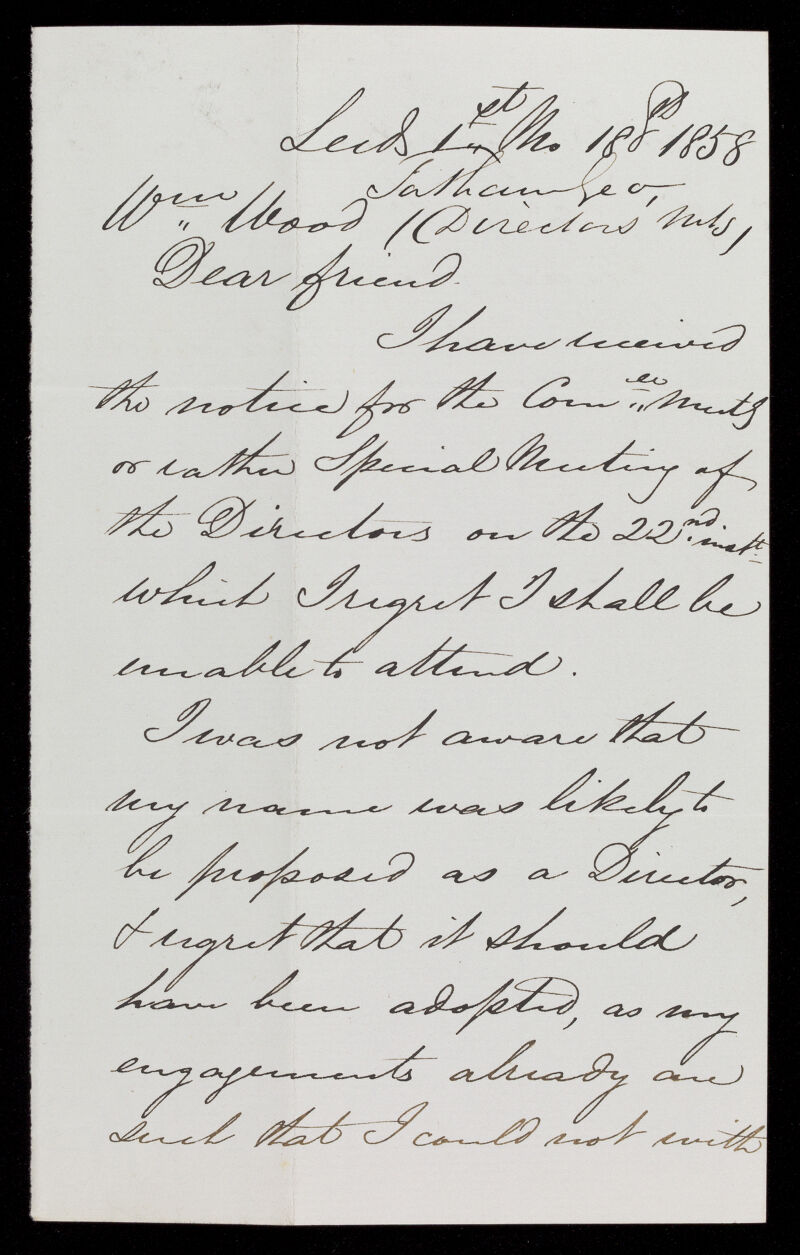 Leeds 1st Mo 18 1858
Tatham Geo,
Wm Wood (Directors Mtg)
Dear friend.
I have received
the notice for the Comee Meetg
or rather Special Meeting of
the Directors on the 22nd. inst
which I regret I shall be
unable to attend.
I was not aware that
my name was likely to
be proposed as a Director,
& regret that it should
have been adopted, as my
engagements already are
such that I could not with